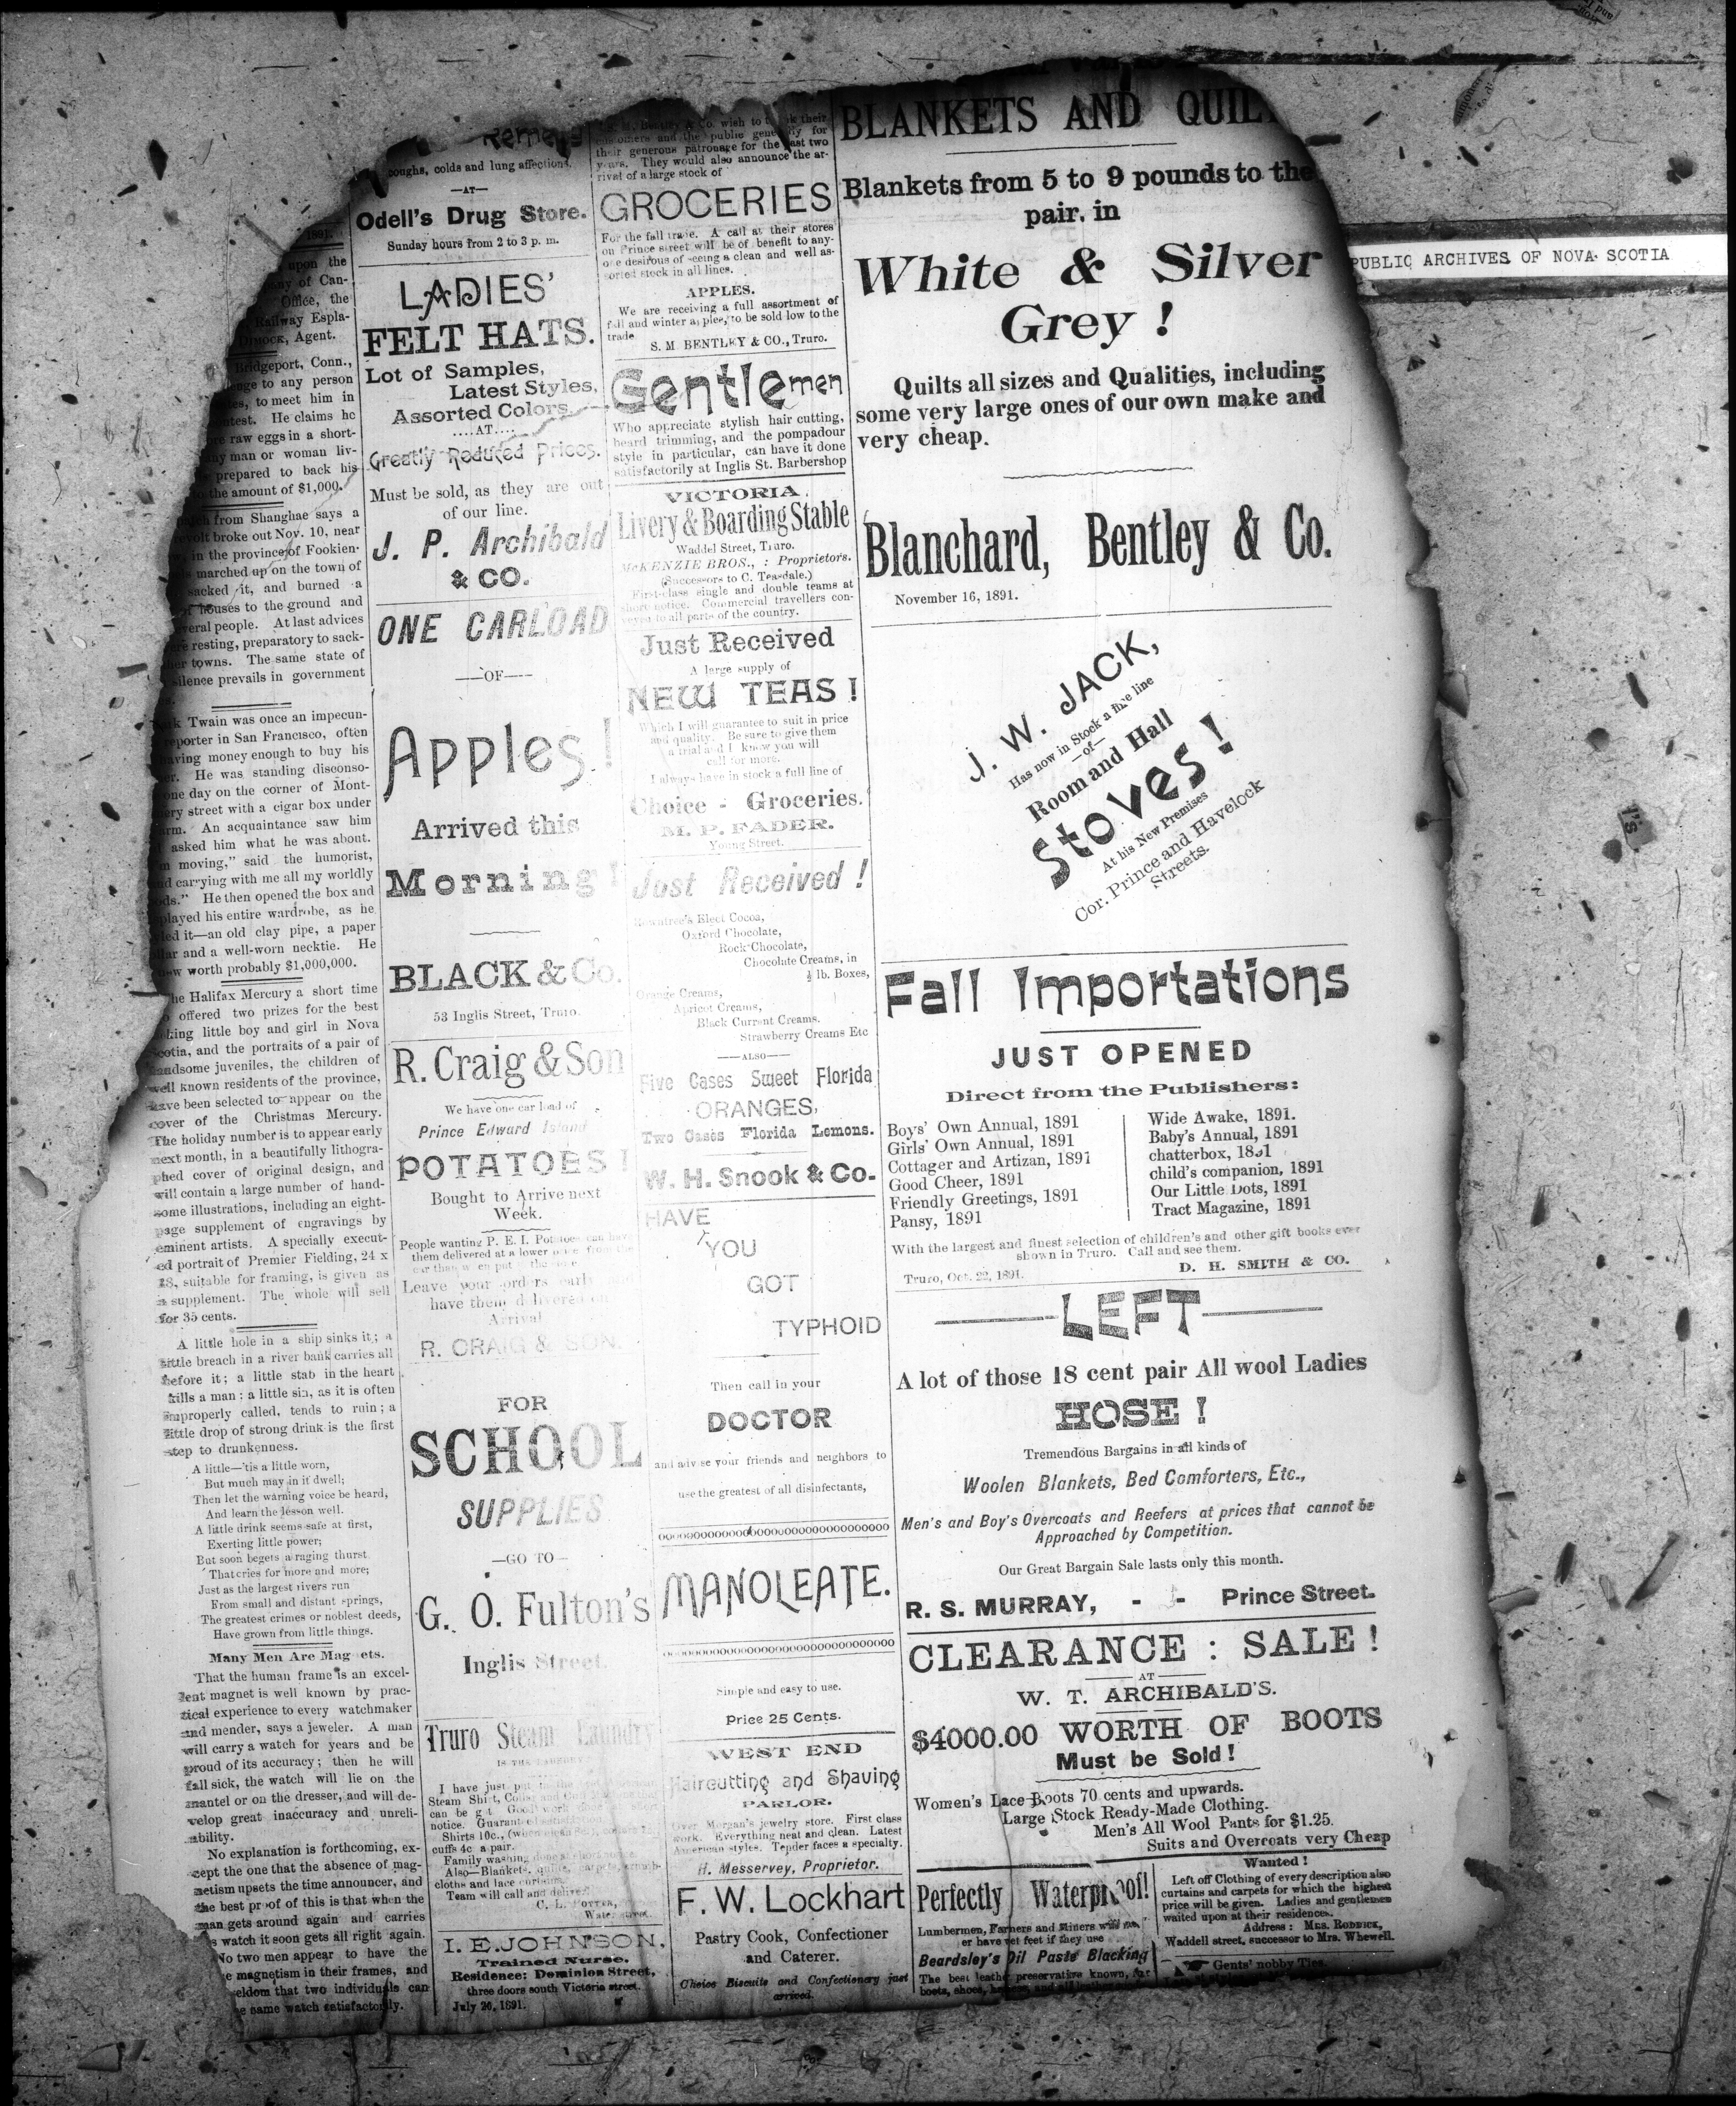 1891.
upon the
any of Can-
Office, the
Railway Espla-
Dimock, Agent.
Bridgeport, Conn.,
enge to any person
to meet him in
ntest. He claims he
raw eggs in a short-
ny man or woman liv-
prepared to back his
the amount of $1,000.
from Shanghae says a
revolt broke out Nov. 10, near
in the province of Fookien-
marched up on the town of
sacked it, and burned a
of houses to the ground and
veral people. At last advices
resting, preparatory to sack-
towns. The same state of
silence prevails in government
Twain was once an impecun-
reporter in San Francisco, often
aving money enough to buy his
He was standing disconso-
one day on the corner of Mont-
ery street with a cigar box under
arm. An acquaintance saw him
asked him what he was about.
moving," said the humorist,
nd carrying with me all my worldly
ods." He then opened the box and
played his entire wardrobe, as he
led it—an old clay pipe, a paper
lar and a well-worn necktie. He
now worth probably $1,000,000.
he Halifax Mercury a short time
offered two prizes for the best
king little boy and girl in Nova
Scotia, and the portraits of a pair of
handsome juveniles, the children of
well known residents of the province,
have been selected to appear on the
cover of the Christmas Mercury.
The holiday number is to appear early
next month, in a beautifully lithogra-
phed cover of original design, and
will contain a large number of hand-
some illustrations, including an eight-
page supplement of engravings by
eminent artists. A specially execut-
ed portrait of Premier Fielding, 24 x
18, suitable for framing, is given as
a supplement. The whole will sell
for 35 cents.
A little hole in a ship sinks it; a
little breach in a river bank carries all
before it; a little stab in the heart
kills a man: a little sin, as it is often
improperly called, tends to ruin; a
little drop of strong drink is the first
step to drunkenness.
A little—'tis a little worn,
But much may in it dwell;
Then let the warning voice be heard,
And learn the lesson well.
A little drink seems safe at first,
Exerting little power;
But soon begets a raging thurst
That cries for more and more;
Just as the largest rivers run
From small and distant springs,
The greatest crimes or noblest deeds,
Have grown from little things.
Many Men Are Mag ets.
That the human frame is an excel-
lent magnet is well known by prac-
tical experience to every watchmaker
and mender, says a jeweler. A man
will carry a watch for years and be
proud of its accuracy; then he will
fall sick, the watch will lie on the
mantel or on the dresser, and will de-
velop great inaccuracy and unreli-
ability.
No explanation is forthcoming, ex-
cept the one that the absence of mag-
netism upsets the time announcer, and
the best proof of this is that when the
man gets around again and carries
s watch it soon gets all right again.
No two men appear to have the
e magnetism in their frames, and
eldom that two individuals can
e same watch satisfactorily.
Remedy
coughs, colds and lung affections,
—AT—
Odell's Drug Store.
Sunday hours from 2 to 3 p. m.
LADIES'
FELT HATS.
Lot of Samples,
Latest Styles,
Assorted Colors
....AT....
Greatly Reduced Prices.
Must be sold, as they are out
of our line.
J. P. Archibald
& CO.
ONE CARLOAD
—OF—
Apples!
Arrived this
Morning!
BLACK & Co.
53 Inglis Street, Truro.
R. Craig & Son
We have one car load of
Prince Edward Island
POTATOES!
Bought to Arrive next
Week.
People wanting P. E. I. Potatoes can have
them delivered at a lower price from the
car than when put
Leave your orders early and
have them delivered on
Arrival
R. CRAIG & SON.
FOR
SCHOOL
SUPPLIES
—GO TO—
G. O. Fulton's
Inglis Street.
Truro Steam Laundry
I have just put
Steam Shirt, Collar and Cuff
can be got. Good work
notice. Guarantee
Shirts 10c.,
cuffs 4c a pair.
Family washing done at short notice.
Also—Blankets, quilts, carpets,
cloths and lace curtains.
Team will call and deliver.
C. L. POTTER,
Water street.
I. E. JOHNSON,
Trained Nurse.
Residence: Dominion Street,
three doors south Victoria street.
July 20, 1891.
Bentley & Co. wish to thank their
customers and the public generally for
their generous patronage for the past two
years. They would also announce the ar-
rival of a large stock of
GROCERIES
For the fall trade. A call at their stores
on Prince street will be of benefit to any-
one desirous of seeing a clean and well as-
sorted stock in all lines.
APPLES.
We are receiving a full assortment of
fall and winter apples, to be sold low to the
trade
S. M BENTLEY & CO., Truro.
Gentlemen
Who appreciate stylish hair cutting,
beard trimming, and the pompadour
style in particular, can have it done
satisfactorily at Inglis St. Barbershop
VICTORIA
Livery & Boarding Stable
Waddel Street, Truro.
McKENZIE BROS., : Proprietors.
(Successors to C. Teasdale.)
First-class single and double teams at
short notice. Commercial travellers con-
veyed to all parts of the country.
Just Received
A large supply of
NEW TEAS!
Which I will guarantee to suit in price
and quality. Be sure to give them
a trial and I know you will
call for more.
I always have in stock a full line of
Choice - Groceries.
M. P. FADER.
Young Street.
Just Received!
Rowntree's Elect Cocoa,
Oxford Chocolate,
Rock Chocolate,
Chocolate Creams, in
½ lb. Boxes,
Orange Creams,
Apricot Creams,
Black Currant Creams.
Strawberry Creams Etc
—ALSO—
Five Cases Sweet Florida
ORANGES,
Two Cases Florida Lemons.
W. H. Snook & Co.
HAVE
YOU
GOT
TYPHOID
Then call in your
DOCTOR
and advise your friends and neighbors to
use the greatest of all disinfectants,
MANOLEATE.
Simple and easy to use.
Price 25 Cents.
WEST END
Haircutting and Shaving
PARLOR.
Over Morgan's jewelry store. First class
work. Everything neat and clean. Latest
American styles. Tender faces a specialty.
H. Messervey, Proprietor.
F. W. Lockhart
Pastry Cook, Confectioner
and Caterer.
Choice Biscuits and Confectionery just
arrived.
BLANKETS AND QUIL
Blankets from 5 to 9 pounds to the
pair. in
White & Silver
Grey!
Quilts all sizes and Qualities, including
some very large ones of our own make and
very cheap.
Blanchard, Bentley & Co.
November 16, 1891.
J. W. JACK,
Has now in Stock a fine line
—of—
Room and Hall
Stoves!
At his New Premises
Cor. Prince and Havelock
Streets.
Fall Importations
JUST OPENED
Direct from the Publishers:
Boys' Own Annual, 1891
Girls' Own Annual, 1891
Cottager and Artizan, 1891
Good Cheer, 1891
Friendly Greetings, 1891
Pansy, 1891
Wide Awake, 1891.
Baby's Annual, 1891
chatterbox, 1891
child's companion, 1891
Our Little Dots, 1891
Tract Magazine, 1891
With the largest and finest selection of children's and other gift books ever
shown in Truro. Call and see them.
D. H. SMITH & CO.
Truro, Oct. 22, 1891.
LEFT
A lot of those 18 cent pair All wool Ladies
HOSE!
Tremendous Bargains in all kinds of
Woolen Blankets, Bed Comforters, Etc.,
Men's and Boy's Overcoats and Reefers at prices that cannot be
Approached by Competition.
Our Great Bargain Sale lasts only this month.
R. S. MURRAY, - - Prince Street.
CLEARANCE : SALE!
AT
W. T. ARCHIBALD'S.
$4000.00 WORTH OF BOOTS
Must be Sold!
Women's Lace Boots 70 cents and upwards.
Large Stock Ready-Made Clothing.
Men's All Wool Pants for $1.25.
Suits and Overcoats very Cheap
Perfectly Waterproof!
Lumbermen, Farmers and Miners will
er have wet feet if they use
Beardsley's Oil Paste Blacking
The best leather preservative known, for
boots, shoes, harness, and all leather
Wanted!
Left off Clothing of every description also
curtains and carpets for which the highest
price will be given. Ladies and gentlemen
waited upon at their residences.
Address: MRS. RODDICK,
Waddell street, successor to Mrs. Whewell.
Gents' nobby Ties.
PUBLIC ARCHIVES OF NOVA SCOTIA